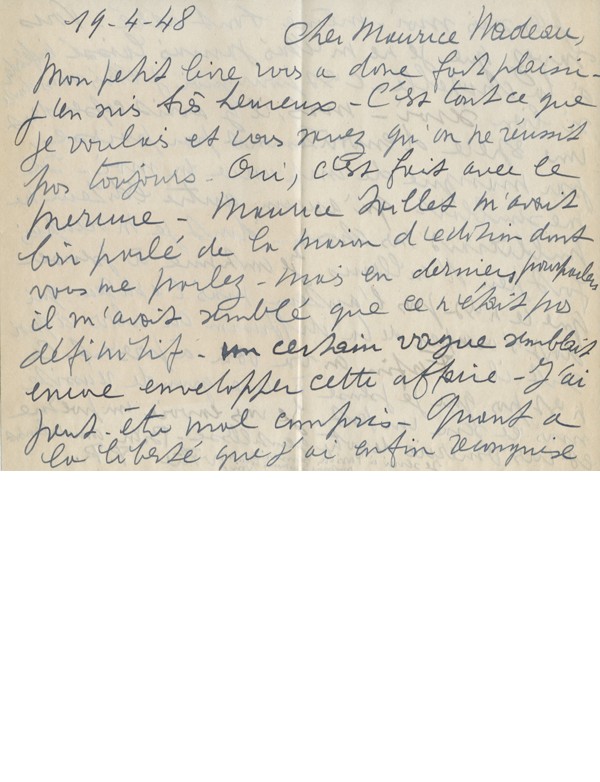 19-4-48
Cher Maurice Nadeau,
Mon petit livre vous a donc fait plaisir -
j'en suis très heureux - C'est tout ce que
je voulais et vous savez qu'on ne réussit
pas toujours - Oui, c'est fait avec le
mercure - Maurice Saillet m'avait
bien parlé de la maison d'edition dont
vous me parlez - mais en derniers pourparlers
il m'avait semblé que ce n'était pas
définitif - un certain vague semblait
encore envelopper cette affaire - J'ai
peut-être mal compris - Quant a
la liberté que j'ai enfin reconquise